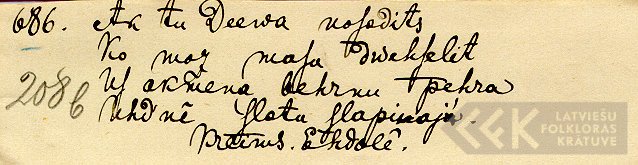 686. Ak tu Deewa nosodits
Ko moz masu dwehselit
2086
Us akmena behrnu pehra
Uhdnē slotu slapinaja.
Preems. Ehdolē.
LATVIEŠU
FOLKLORAS
KRĀTUVE